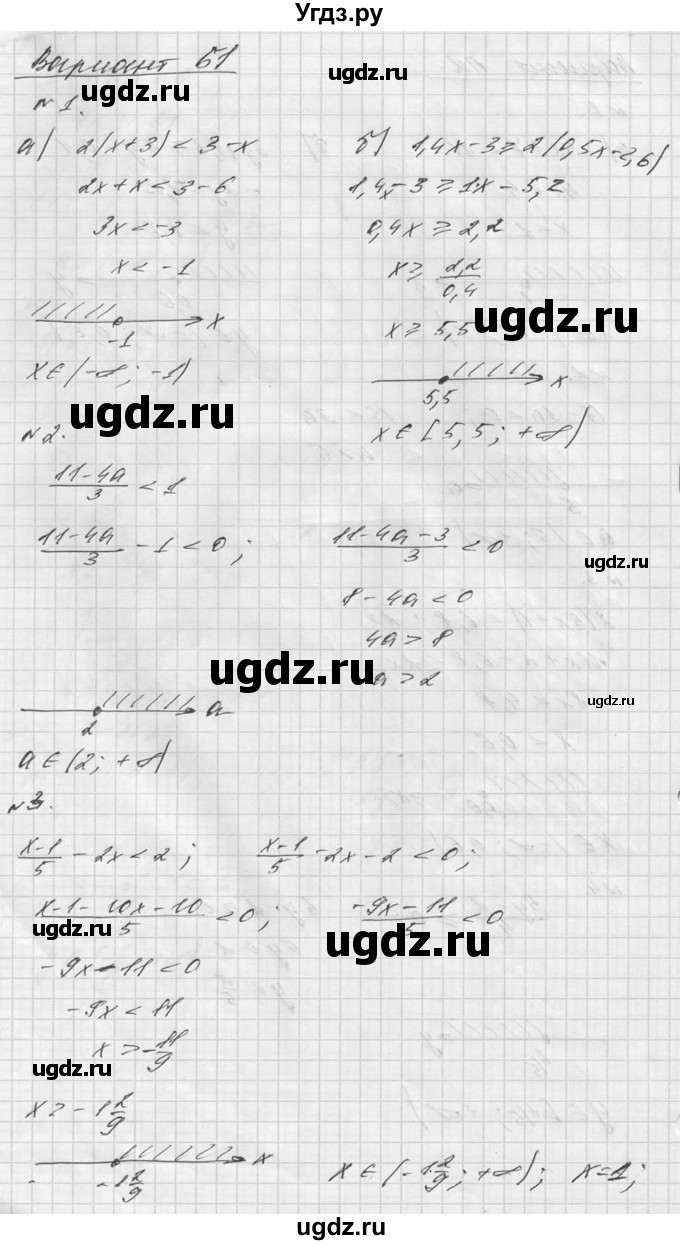 Угдз.ру
Вариант Б1
№1.
а) 2(x+3) < 3-x
2x+x < 3-6
3x < -3
x < -1
-1 x
x ∈ (-∞; -1)
б) 1,4x-3 ≥ 2(0,5x-2,6)
1,4x-3 ≥ 1x - 5,2
0,4x ≥ 2,2
x ≥ 2,2/0,4
x ≥ 5,5
5,5 x
x ∈ [5,5; +∞)
№2.
(11-4a)/3 < 1
(11-4a)/3 - 1 < 0; (11-4a-3)/3 < 0
8-4a < 0
4a > 8
a > 2
2 a
a ∈ (2; +∞)
№3.
(x-1)/5 - 2x < 2; (x-1)/5 - 2x - 2 < 0;
(x-1-10x-10)/5 < 0; (-9x-11)/5 < 0
-9x-11 < 0
-9x < 11
x > -11/9
x > -1 2/9
-1 2/9 x
x ∈ (-1 2/9; +∞); x=1;
ugdz.ru
ugdz.ru
ugdz.ru
ugdz.ru
ugdz.ru
ugdz.ru
ugdz.ru
ugdz.ru
ugdz.ru
ugdz.ru
ugdz.ru
ugdz.ru
ugdz.ru